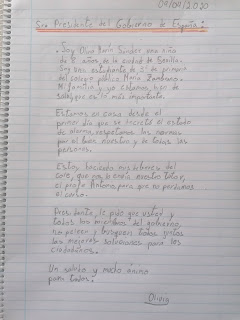 09/04/2020
Sr. Presidente del Gobierno de España:
. Soy Olivia Marín Sánder una niña
de 8 años, de la ciudad de Sevilla.
Soy una estudiante de 3º de primaria
del colegio público María Zambrano.
Mi familia y yo estamos bien de
salud, que es lo más importante.
Estamos en casa desde el
primer día que se decretó el estado
de alarma, respetamos las normas
por el bien nuestro y de todas las
personas.
Estoy haciendo mis deberes del
cole, que nos lo envía nuestro tutor,
el profe Antonio, para que no perdamos
el curso.
Presidente, le pido que usted y
todos los miembros del gobierno,
no peleen y busquen todos juntos
las mejores soluciones para los
ciudadanos.
Un saludo y mucho ánimo
para todos.
Olivia